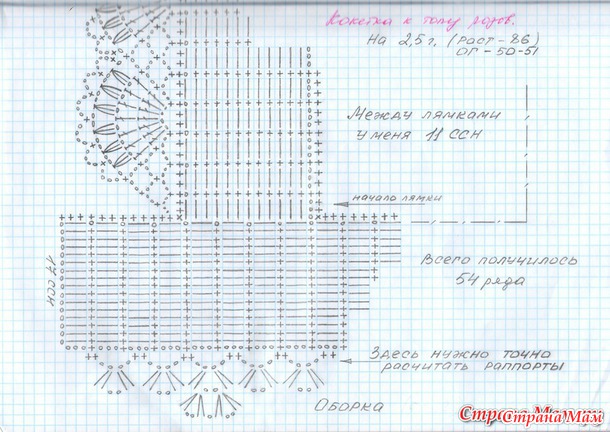 Кокетка к топу розов.
На 2,5 г. (рост - 86)
ОГ - 50-51
Между лямками
у меня 11 ССН
начало лямки
17 ССН
Всего получилось
54 ряда
Здесь нужно точно
расчитать раппорты
Оборка
СтранаМам